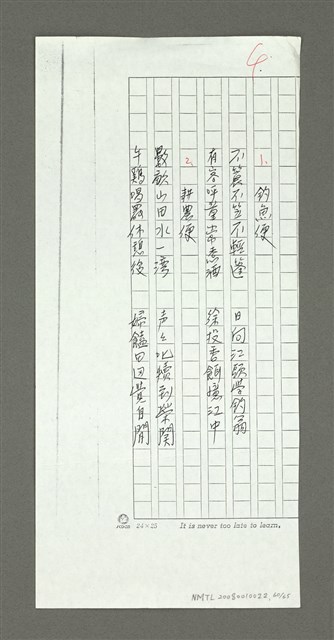 4.
1. 釣魚便
不簑不笠不輕篷 日向江頭學釣翁
有客呼童常煮酒 徐投香餌擾江中
2. 耕農便
數畝山田水一湾 声々叱犢到柴関
午鷄唱罷休憩後 婦饁田回覺自閒
24×25 It is never too late to learn.
NMTL 20080010022, 60/65